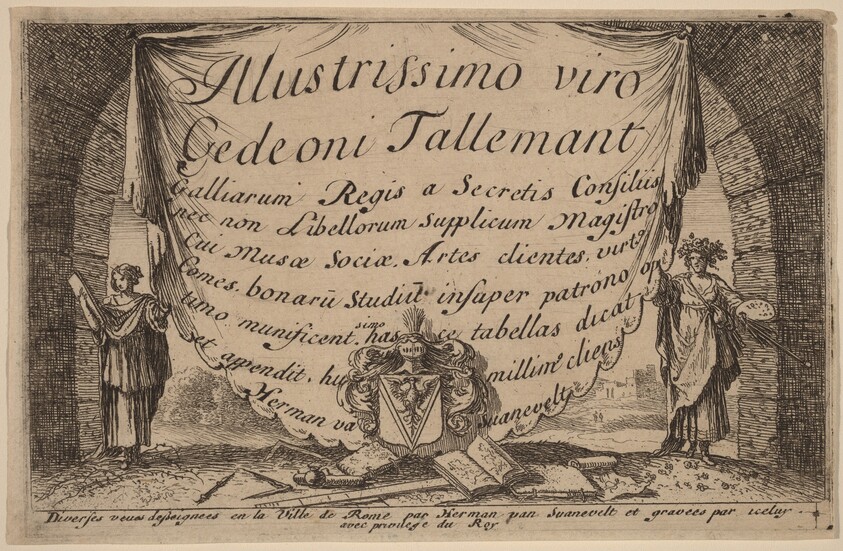 Illustrissimo viro
Gedeoni Tallemant
Galliarum Regis a Secretis Consiliis
nec non Libellorum Supplicum Magistro
Cui Musæ Sociæ, Artes clientes, virtꝰ
Comes, bonarū Studiū insuper patrono op
timo munificent.simo has ce tabellas dicat
et appendit, hu millimꝰ cliens
Herman va Suanevelt
Diverses veues desseignees en la Ville de Rome par Herman van Suanevelt et gravees par iceluy
avec privilege du Roy